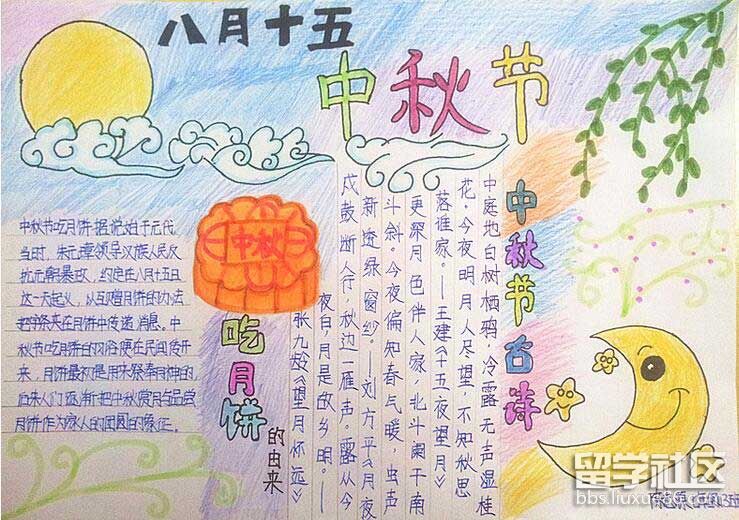 八月十五
中秋节
中秋
中秋节吃月饼据说始于元代
当时，朱元璋领导汉族人民反
抗元朝暴政，约定在八月十五日
这一天起义，从互赠月饼的办法
把字条夹在月饼中传递消息。中
秋节吃月饼的习俗便在民间传开
来，月饼最初是用来祭奉月神的
后来人们逐渐把中秋赏月与品尝
月饼作为家人的团圆的象征。
吃月饼
的由来
中秋节古诗
中庭地白树栖鸦，冷露无声湿桂
花。今夜明月人尽望，不知秋思
落谁家。——王建《十五夜望月》
更深月色伴人家，北斗阑干南
斗斜。今夜偏知春气暖，虫声
新透绿窗纱。——刘方平《月夜
戍鼓断人行，秋边一雁声。露从今
夜白，月是故乡明。——
张九龄《望月怀远》
留学社区
bbs.liuxue86.com